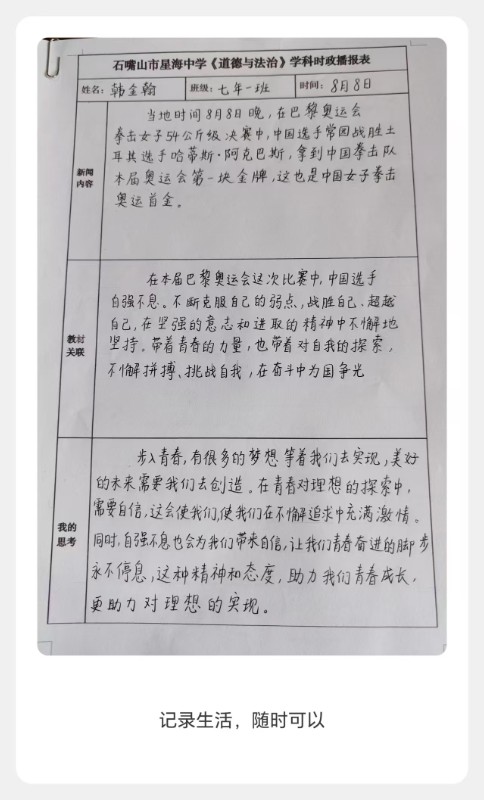 石嘴山市星海中学《道德与法治》学科时政播报表
姓名： 韩金翰 班级： 七年一班 时间： 8月8日
新闻
内容
当地时间8月8日晚，在巴黎奥运会
拳击女子54公斤级决赛中，中国选手常园战胜土
耳其选手哈蒂斯·阿克巴斯，拿到中国拳击队
本届奥运会第一块金牌，这也是中国女子拳击
奥运首金。
教材
关联
在本届巴黎奥运会这次比赛中，中国选手
自强不息。不断克服自己的弱点，战胜自己、超越
自己，在坚强的意志和进取的精神中不懈地
坚持。带着青春的力量，也带着对自我的探索，
不懈拼搏、挑战自我，在奋斗中为国争光
我的
思考
步入青春，有很多的梦想等着我们去实现，美好
的未来需要我们去创造。在青春对理想的探索中，
需要自信，这会使我们，使我们在不懈追求中充满激情。
同时，自强不息也会为我们带来自信，让我们青春奋进的脚步
永不停息，这种精神和态度，助力我们青春成长，
更助力对理想的实现。
记录生活，随时可以